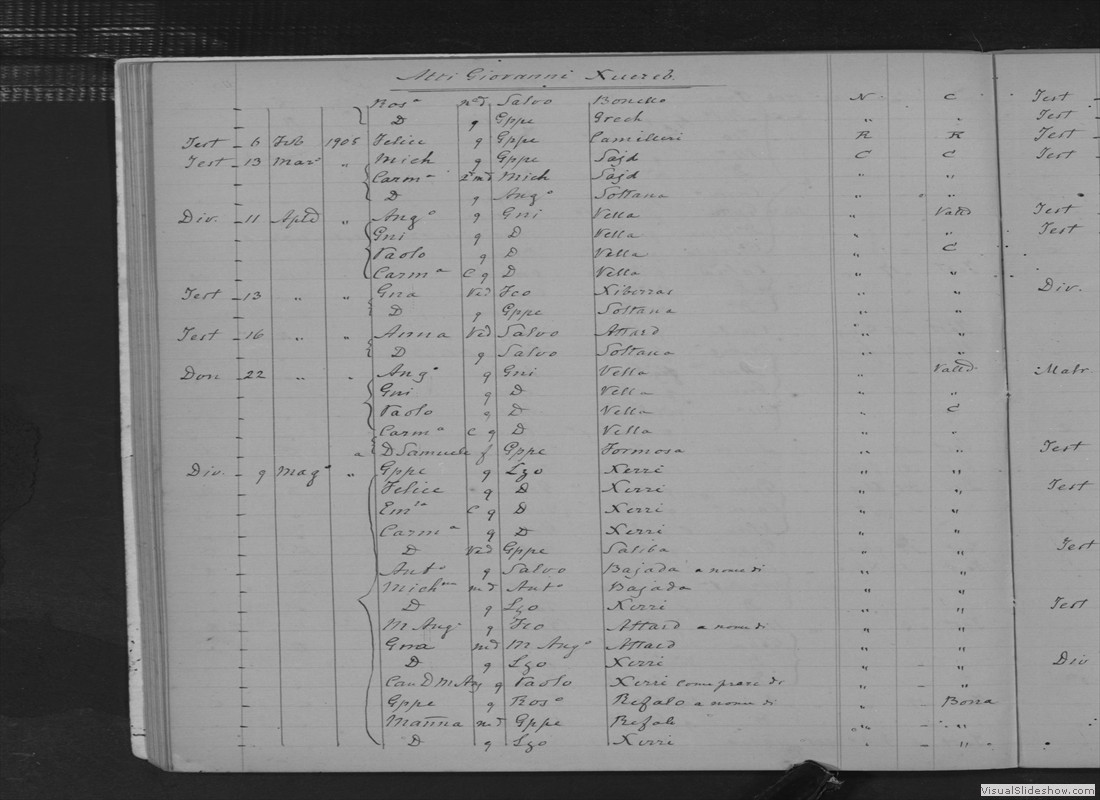 Atti Giovanni Xuereb.
Ros.a n.d Salvo Boncko N. C Test
D g Gppe Grech " . Test
Test 6 Feb 1905 Felice g Gppe Camilleri R R Test
Test 13 Mar. " Mich g Gppe Sajd C C Test
Carm.a 2 md Mich Sajd " "
D g Ang.o Soltana " "
Div. 11 " Ang.o g Gni Vella " Vald Test
Gni g D Vella " " Test
Paolo g D Vella " C
Carm.a C g D Vella " "
Test 13 " " Gna Ved Fco Xiberras " " Div.
D g Gppe Soltana " "
Test 16 " " Anna Ved Salvo Attard " "
D g Salvo Soltana " "
Don 22 " " Ang.o g Gni Vella " Valld. Matr
Gni g D Vella "
Paolo g D Vella " C
Carm.a C g D Vella " "
a D Samuele f Gppe Formosa " " Test
Div. 9 Mag.o " Gppe g Lzo Xerri " "
Felice g D Xerri " " Test
C g D Xerri " "
Carm.a g D Xerri " "
D Ved Gppe Saliba " " Test
Ant.o g Salvo Bajada a nome di " "
md Ant.o Bajada " "
D g Lzo Xerri " " Test
M Ang. g Fco Attard a nome di " "
Gna md M Ang.o Attard " "
D g Lzo Xerri " " Div
Can D M Ang g Paolo Xerri come di " "
Gppe g Ros.o Refalo a nome di " Bona
Marina md Gppe Refalo " "
D g Lzo Xerri . "
VisualSlideshow.com